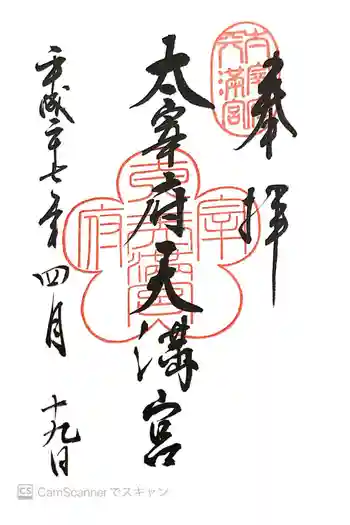 奉拝
太宰府天満宮
平成二十七年四月十九日
太宰府天満宮
CS CamScannerでスキャン